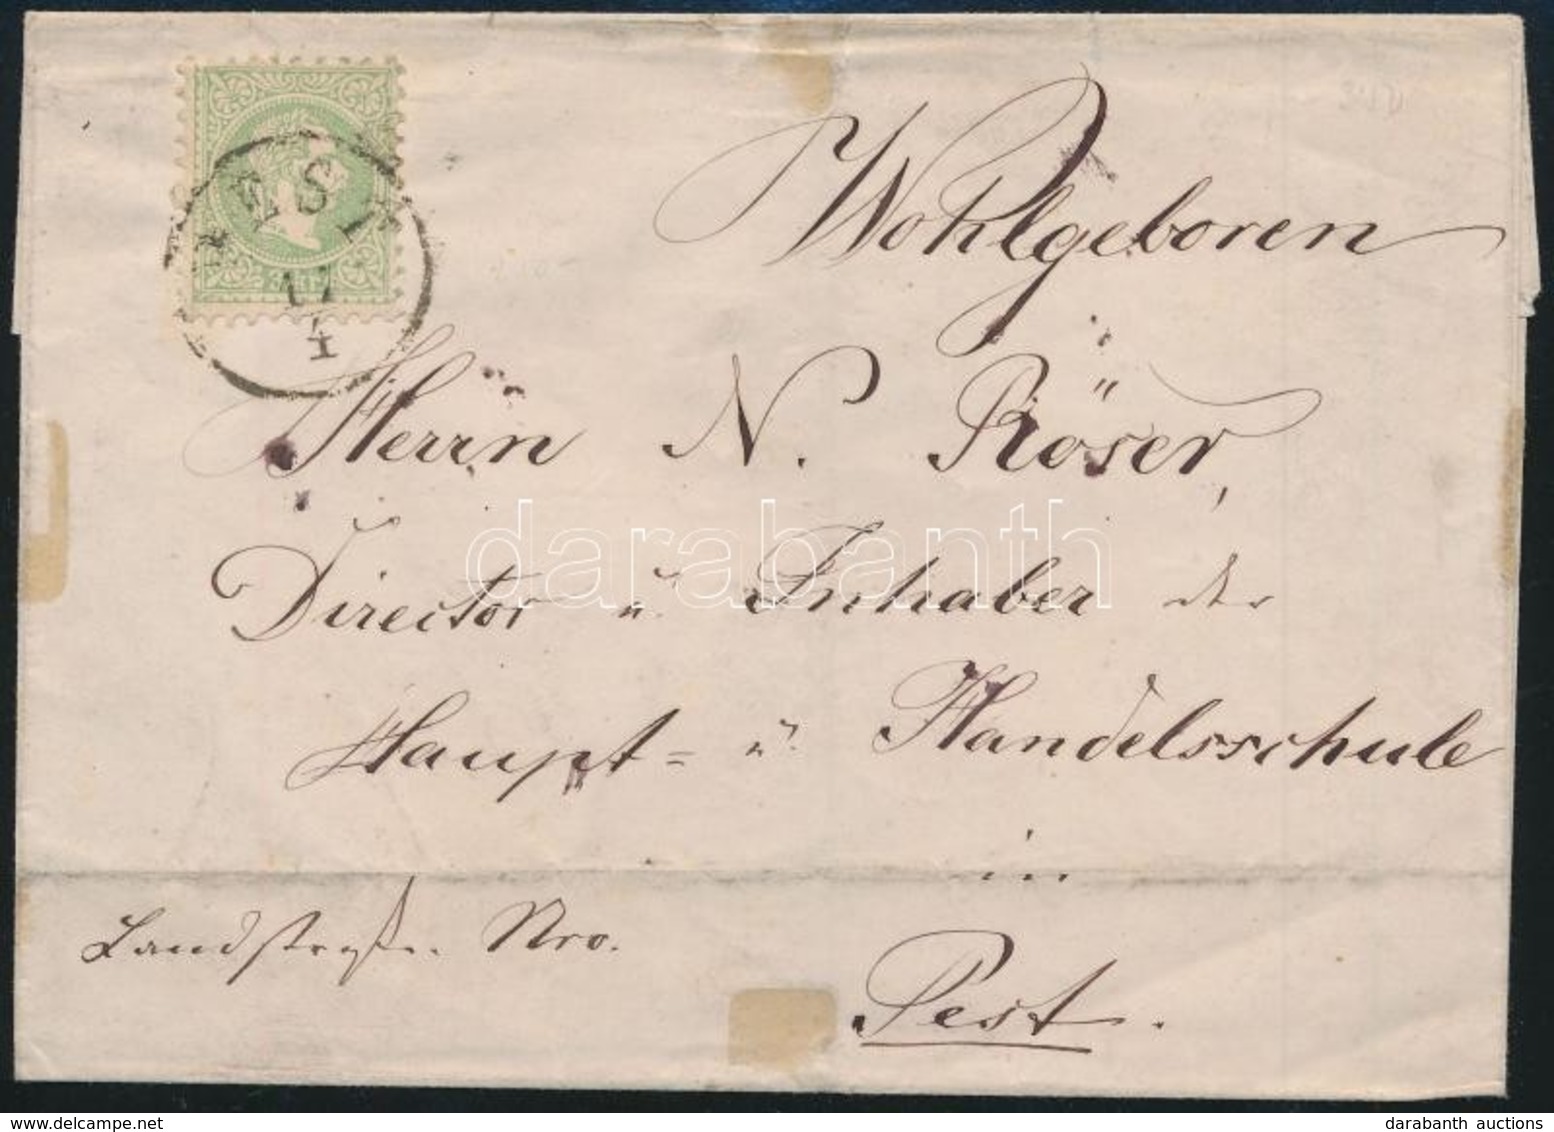 PEST
17
4
3 KR
Wohlgeboren
Herrn N. Röser,
Director u Inhaber der
Haupt= u. Handelsschule
in
Landstraße Nro. Pest.
darabanth
darabanth auctions